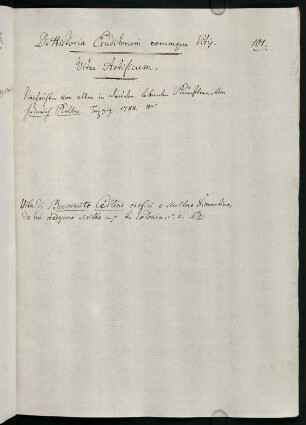 De Historia Eruditorum eorumque Vitis.
101.
Vitae Artificum.
Nachrichten von allen in Dresden lebenden Künstlern, von
Heinrich Keller. Leipzig 1788. 8º
Vita di Benvenuto Cellini orefice e scultore Fiorentino,
da lui medesimo scritta in Colonia. s. a. 4to